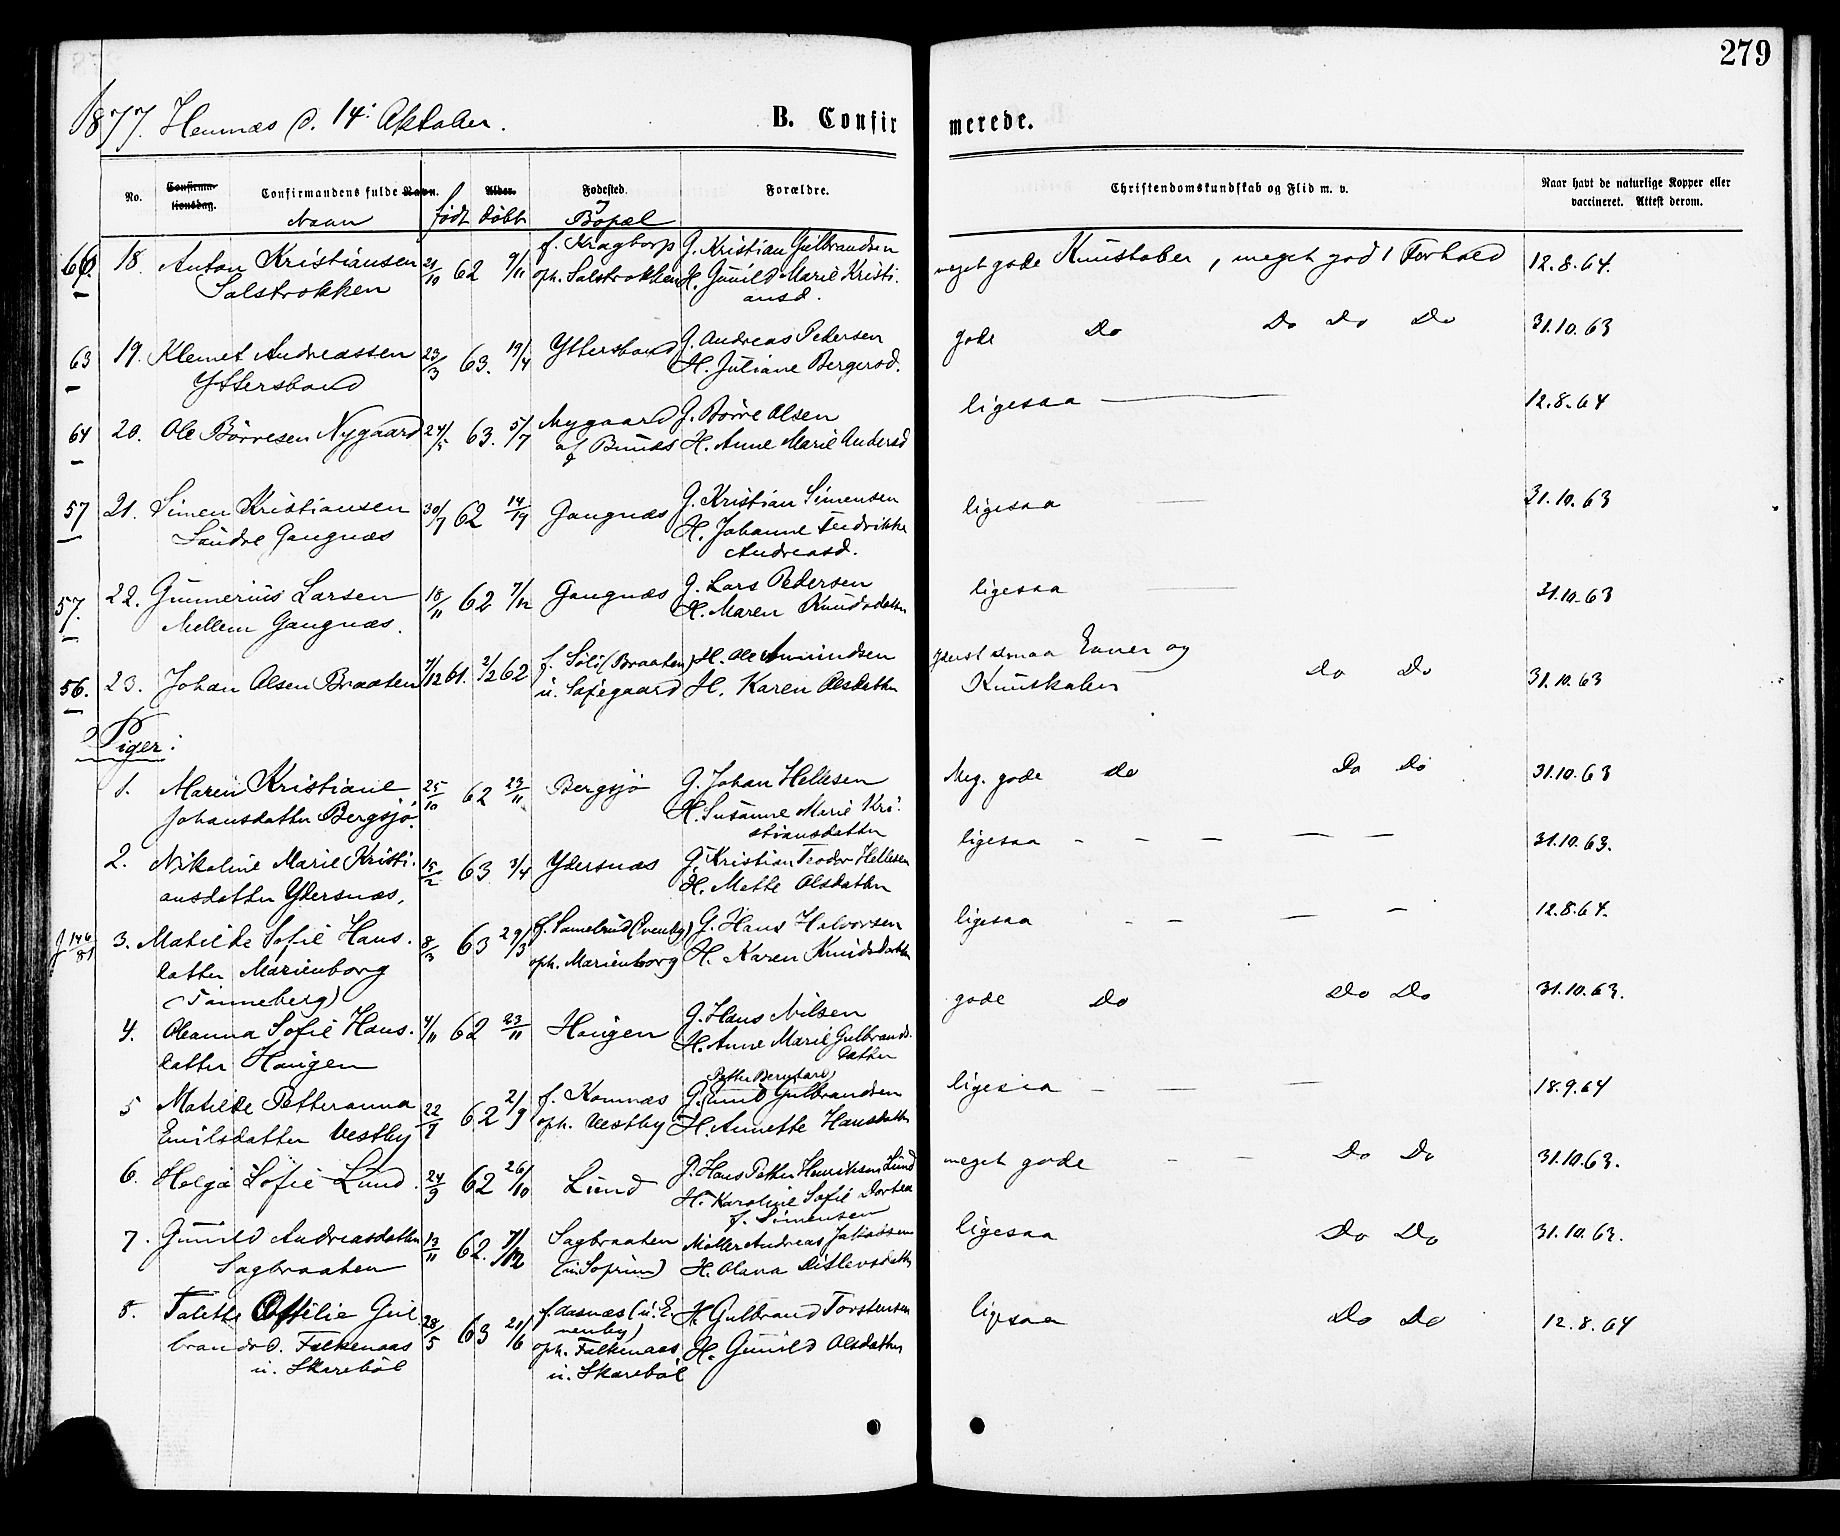 279
1877. Hemnæs d. 14: Oktober.
B. Confirmerede.
No.
Confirmationsdag.
Confirmandens fulde Navn.
Navn
født
Alder.
døbt
Fødested.
Bopæl
Forældre.
Christendomskundskab og Flid m. v.
Naar havt de naturlige Kopper eller
vaccineret. Attest derom.
18. Anton Kristiansen 21/10 62 9/11 f. Kragtorp G. Kristian Gulbrandsen meget gode Kundskaber, meget god Forhold 12.8.64.
Solstrokken oph. Solstrokken H. Gunild Marie Kristi-
ansd.
63 19. Klemet Andreassen 23/3 63. 19/4 Yttersbond G. Andreas Pedersen gode Do Do Do Do 31.10.63
Yttersbond H. Juliane Bergersd.
64 20. Ole Børresen Nygaard 24/5 63. 5/7 Nygaard G. Børre Olsen ligesaa 12.8.64
af Bunæs H. Anne Marie Andersd
57 21. Simen Kristiansen 30/7 62 14/9 Gangnæs G. Kristian Simensen ligesaa 31.10.63
Søndre Gangnæs H. Johanne Fredrikke
Andreasd.
57. 22. Gunnerius Larsen 18/11 62 7/12 Gangnæs G. Lars Pedersen ligesaa 31.10.63
Mellem Gangnæs. H. Maren Knudsdatter
56. 23. Johan Olsen Braaten 7/12 61. 2/2 62 f. Søli (Braaten) H. Ole Amundsen Yderst smaa Evner og Do Do 31.10.63
u. H. Karen Olsdatter Kundskaber
Piger:
1. Maren Kristiane 25/10 62 23/11 Bergsjø G. Johan Hellesen Meg. gode do Do Do 31.10.63
Johansdatter Bergsjø. H. Susanne Marie Kri-
stiansdatter
2. Nikoline Marie Kristi- 15/2 63 3/4 Ydersnæs G. Kristian Teodor Hellesen ligesaa - - - - - 31.10.63.
ansdatter Ydersnæs, H. Mette Olsdatter
J 146/81 3. Matilde Sofie Hans- 8/3 63 29/3 f. (Evenby) G. Hans Halvorsen ligesaa - - - - 12.8.64.
datter Marienborg oph. Marienborg H. Karen Knudsdatter
(Tanneberg)
4. Oleanna Sofie Hans- 4/11 62 23/11 Haugen G. Hans Nilsen gode Do Do Do 31.10.63.
datter Haugen H. Anne Marie Gulbrands-
datter
5 Matilde Petteranna 22/7 62 21/9 f. Komnæs G. Emil Gulbrandsen ligesaa - - - 18.9.64
Emilsdatter Vestby oph. Vestby H. Annette Hansdatter
6. Helga Sofie Lund. 24/9 62 26/10 Lund G. Hans Petter Henriksen Lund meget gode - - Do Do 31.10.63.
H. Karoline Sofie Dortea
f. Simensen
7. Gunild Andreasdatter 13/11 62. 7/12 Sagbraaten Møller Andreas Jakobsen ligesaa Do Do 31.10.63.
Sagbraaten (u. Soprim) H. Olava Ditlevsdatter
8. Talette Otilie Gul- 28/5 63 21/6 f. Aasnæs (u. E- H. Gulbrand Torstensen ligesaa Do Do 12.8.64
brandsd. Falkenaas venby) H. Gunild Olsdatter
u. Skarebøl oph. Falkenaas
u. Skarebøl